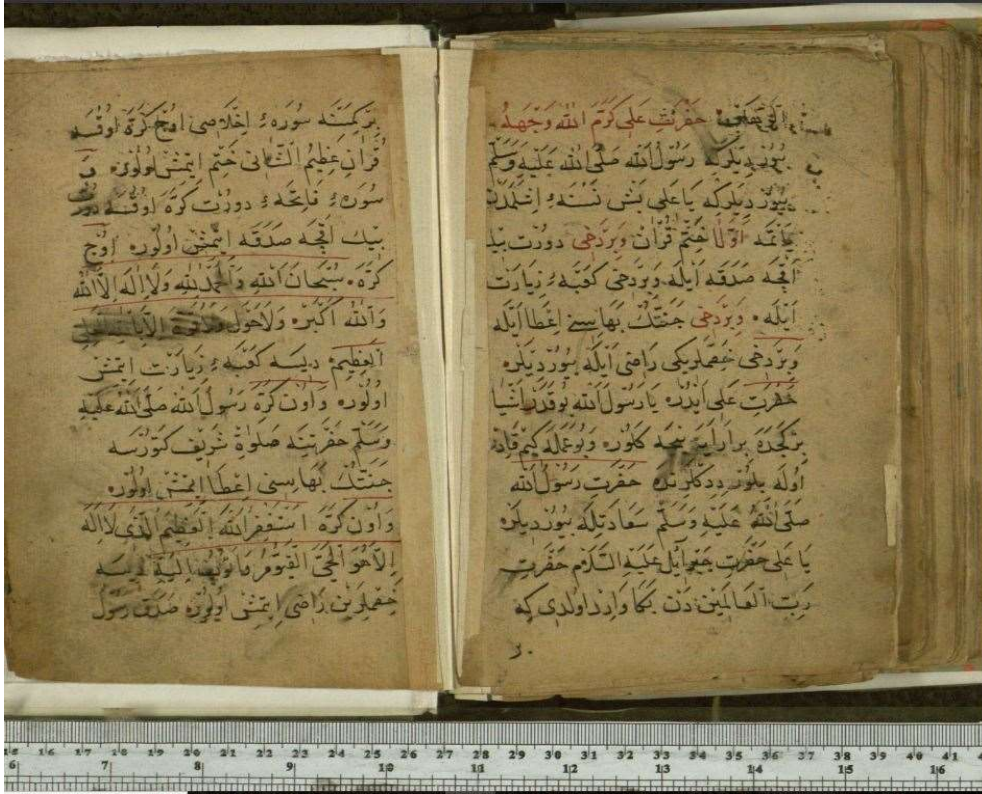 حَضْرَتِ عَلِى كَرَّمَ اللّٰهُ وَجْهَهُ
بُيُورْدِيلَرْكِه رَسُولُ اللّٰه صَلَّى اللّٰهُ عَلَيْهِ وَسَلَّمْ
بُيُورْدِيلَرْكِه يَا عَلِى بَشْ نَسْنَهءِ اِشْلَمَدِنْ
يَاتْمَه اَوَّلَا خَتْمِ قُرْاٰنْ وَبِرْدَخِى دُورْتْ بِيكْ
اَقْچَه صَدَقَه اَيْلَه وَبِرْدَخِى كَعْبَهءِ زِيَارَتْ
اَيْلَه وَبِرْدَخِى جَنَّتِكْ بَهَاسِنِى اِعْطَا اَيْلَه
وَبِرْدَخِى خَصْمْلَرِيكِى رَاضِى اَيْلَه بُيُورْدِيلَرْ
حَضْرَتِ عَلِى اَيْدُرْ يَا رَسُولَ اللّٰه بُوقَدَرْ اَشْيَا
بِرْكِجَه دَه بِرْ اَرَايَه نِيجَه كَلُورْ وَبُوعَمَلَه كِيمْ قَادِرْ
اُولَه بِلُورْ دِدِكْلَرِنْدَه حَضْرَتِ رَسُولُ اللّٰه
صَلَّى اللّٰهُ عَلَيْهِ وَسَلَّمْ سَعَادَتِلَه بُيُورْدِيلَرْ
يَا عَلِى حَضْرَتِ جَبْرَآئِيلْ عَلَيْهِ السَّلَامْ حَضْرَتِ
رَبِّ الْعَالَمِينْ دَنْ بَكَا وَارِدْ اُولْدِى كِه
بِرْ كِمْسَنَه سُورَهءِ اِخْلَاصِى اُوچْ كَرَّه اُوقُسَه
قُرْاٰنِ عَظِيمُ الشَّانِى خَتْمْ اِيتْمِشْ اُولُورْ
سُورَهءِ فَاتِحَهءِ دُورْتْ كَرَّه اُوقُسَه دُورْتْ
بِيكْ اَقْچَه صَدَقَه اِيتْمِشْ اُولُورْ اُوچْ
كَرَّه سُبْحَانَ اللّٰهِ وَالْحَمْدُ لِلّٰهِ وَلَا اِلٰهَ اِلَّا اللّٰهُ
وَاللّٰهُ اَكْبَرْ وَلَا حَوْلَ وَلَا قُوَّةَ اِلَّا بِاللّٰهِ الْعَلِىِّ
الْعَظِيمْ دِيسَه كَعْبَهءِ زِيَارَتْ اِيتْمِشْ
اُولُورْ وَاُونْ كَرَّه رَسُولُ اللّٰه صَلَّى اللّٰهُ عَلَيْهِ
وَسَلَّمْ حَضْرَتِينَه صَلٰوةِ شَرِيفْ كَتُورْسَه
جَنَّتِكْ بَهَاسِنِى اِعْطَا اِيتْمِشْ اُولُورْ
وَاُونْ كَرَّه اَسْتَغْفِرُ اللّٰهَ الْعَظِيمَ الَّذِى لَا اِلٰهَ
اِلَّا هُوَ الْحَىَّ الْقَيُّومَ وَاَتُوبُ اِلَيْهِ دِيسَه
خَصْمْلَرِينْ رَاضِى اِيتْمِشْ اُولُورْ صَدَقَ رَسُولُ